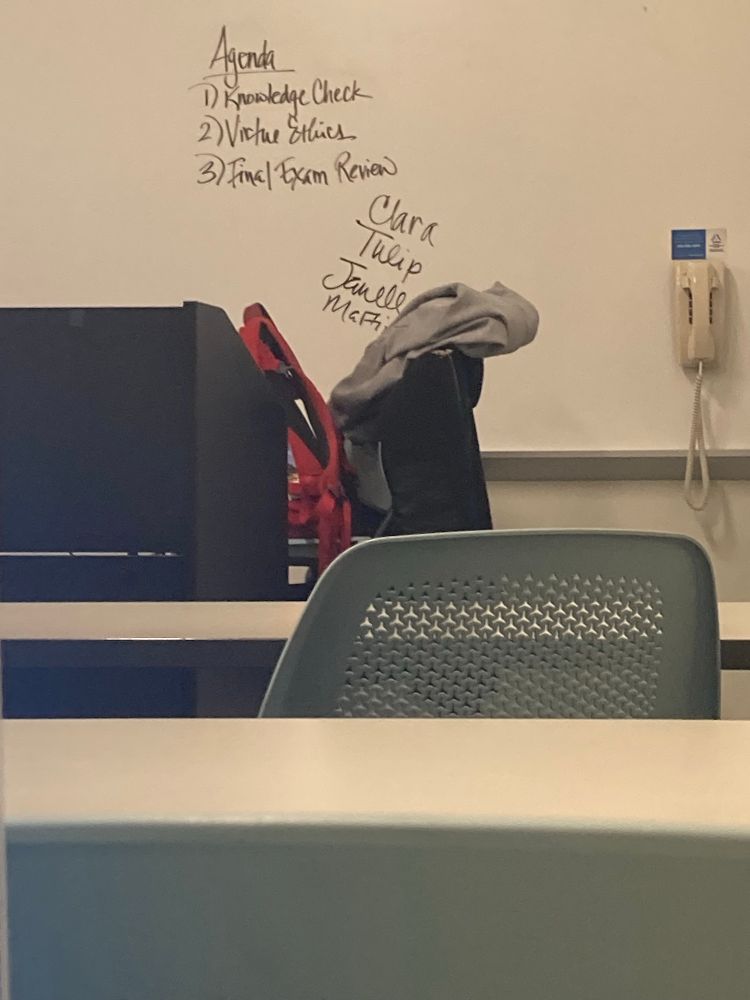 Agenda
1) Knowledge Check
2) Virtue Ethics
3) Final Exam Review
Clara
Tulip
Janelle